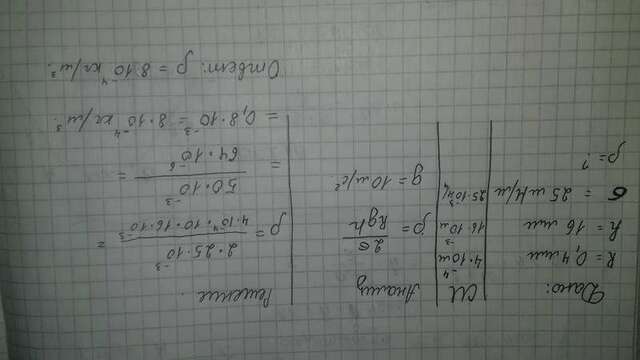 Дано:
R = 0,4 мм
h = 16 мм
σ = 25 мН/м
ρ = ?
СИ
4·10⁻⁴ м
16·10⁻³ м
25·10⁻³ Н/м
Анализ
ρ = 2σ / Rgh
g = 10 м/с²
Решение.
ρ = 2·25·10⁻³ / 4·10⁻⁴·10·16·10⁻³ =
= 50·10⁻³ / 64·10⁻⁶ =
= 0,8·10⁻³ = 8·10⁻⁴ кг/м³.
Ответ: ρ = 8·10⁻⁴ кг/м³.